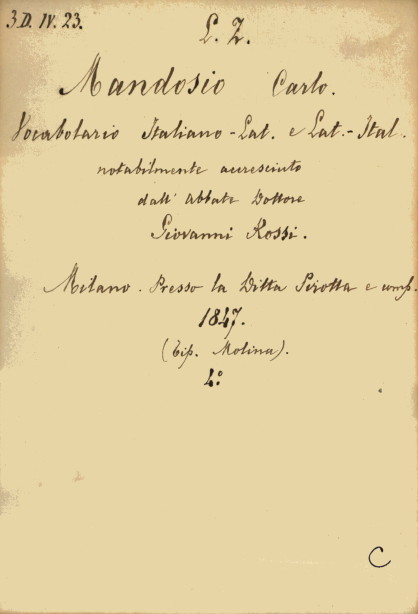 3.D. IV. 23.
L. Z.
Mandosio Carlo.
Vocabolario Italiano-Lat. e Lat.-Ital.
notabilmente accresciuto
dall' Abbate Dottore
Giovanni Rossi.
Milano. Presso la Ditta Pirotta e comp.
1847.
(Tip. Molina).
4°
C